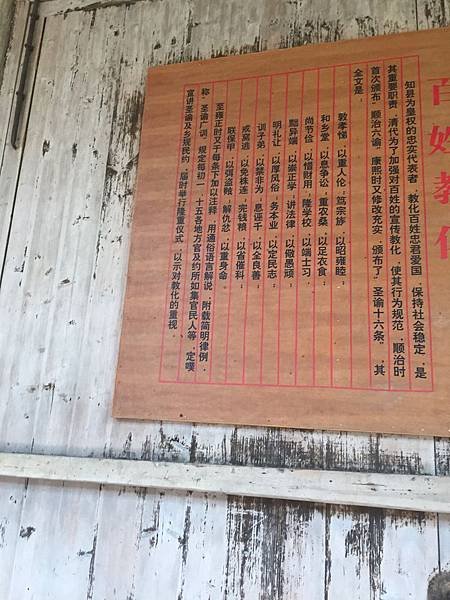 百姓教化
知县为皇权的忠实代表者，教化百姓忠君爱国，保持社会稳定，是
其重要职责，清代为了加强对百姓的宣传教化，使其行为规范，顺治时
首次颁布“顺治六谕”，康熙时又修改充实，颁布了“圣谕十六条”，其
全文是：
敦孝悌，以重人伦；笃宗族，以昭雍睦；
和乡党，以息争讼，重农桑，以足衣食；
尚书俭，以惜财用，隆学校，以端士习，
黜异端，以崇正学，讲法律，以儆愚顽；
明礼让，以厚风俗，务本业，以定民志；
训子弟，以禁非为，息诬千，以全良善；
戒窝逃，以免株连，完钱粮，以省催科；
联保甲，以弭盗贼，解仇忿，以重身命。
至雍正时又于每条下加以注释，用通俗语言解说，附载简明律例，
称“圣谕广训”，规定每初一、十五各地方官及约所如集官民人等，定嘆
宣讲圣谕及乡规民约，届时举行隆重仪式，以示对教化的重视。